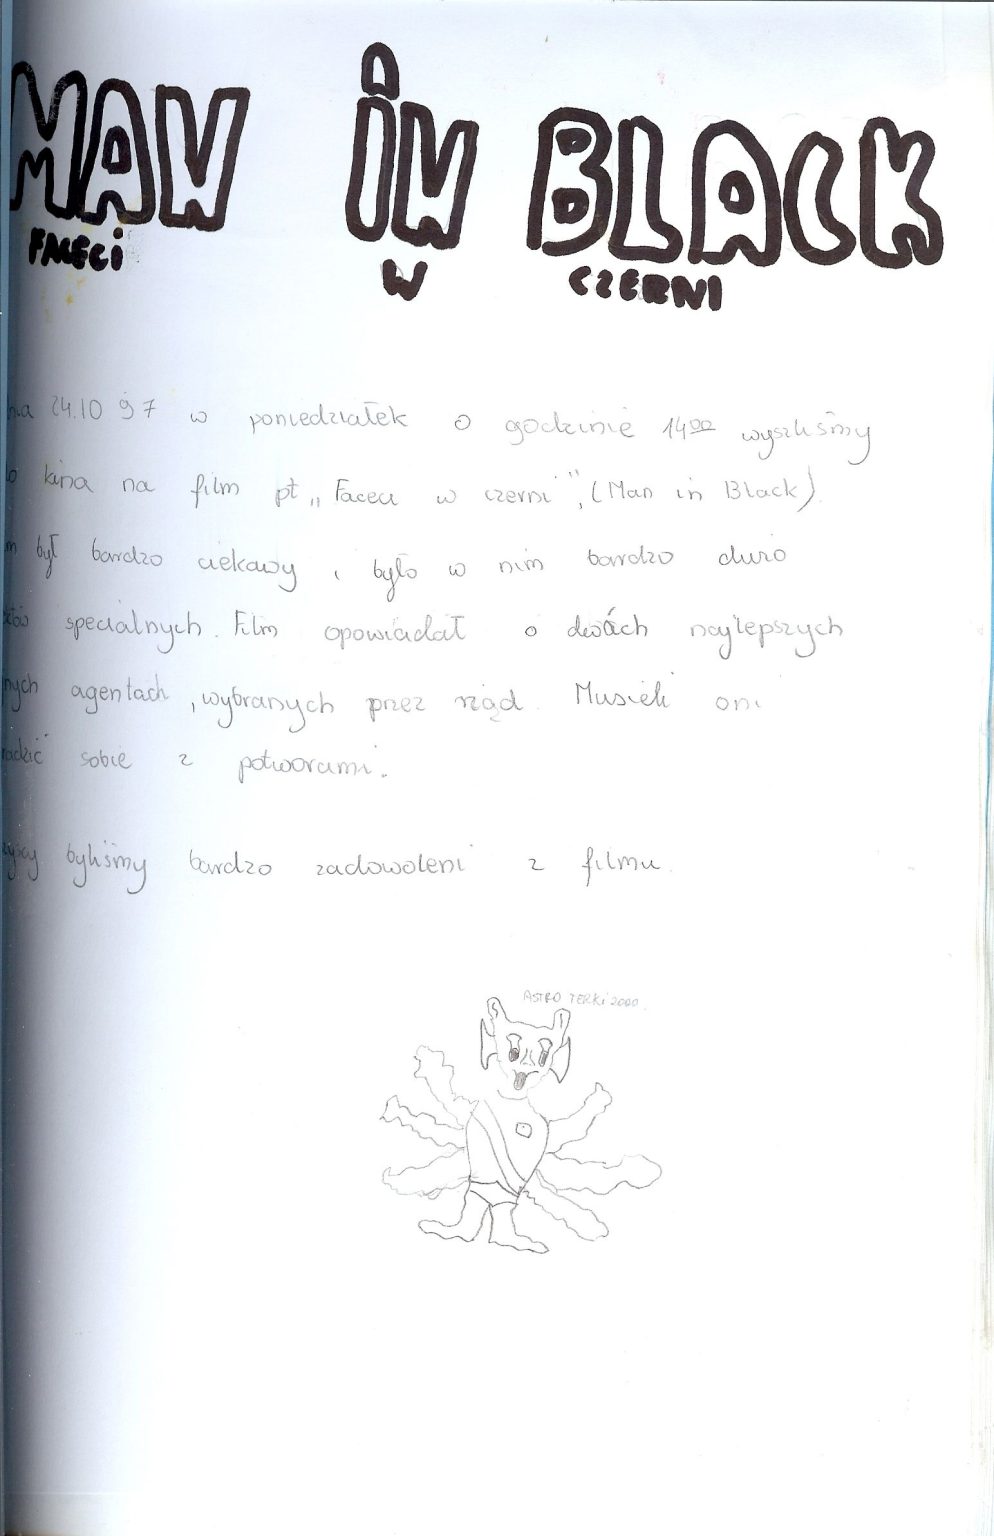 MAN iN BLACK
FACECi W CZERNI
24.10 97 w poniedziałek o godzinie 14⁰⁰ wyszliśmy
kina na film pt „Faceci w czerni", (Man in Black)
był bardzo ciekawy, było w nim bardzo dużo
specialnych. Film opowiadał o dwóch najlepszych
agentach, wybranych przez rząd. Musieli oni
sobie z potworami.
byliśmy bardzo zadowoleni z filmu.
ASTRO TERKi 2000